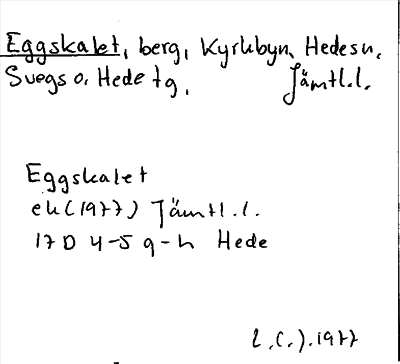 Eggskalet, berg, Kyrkbyn, Hedesn,
Svegs o. Hede tg, Jämtl.l.
Eggskalet
ek (1977) Jämtl.l.
17D 4-5 g-h Hede
L.C.J. 1977